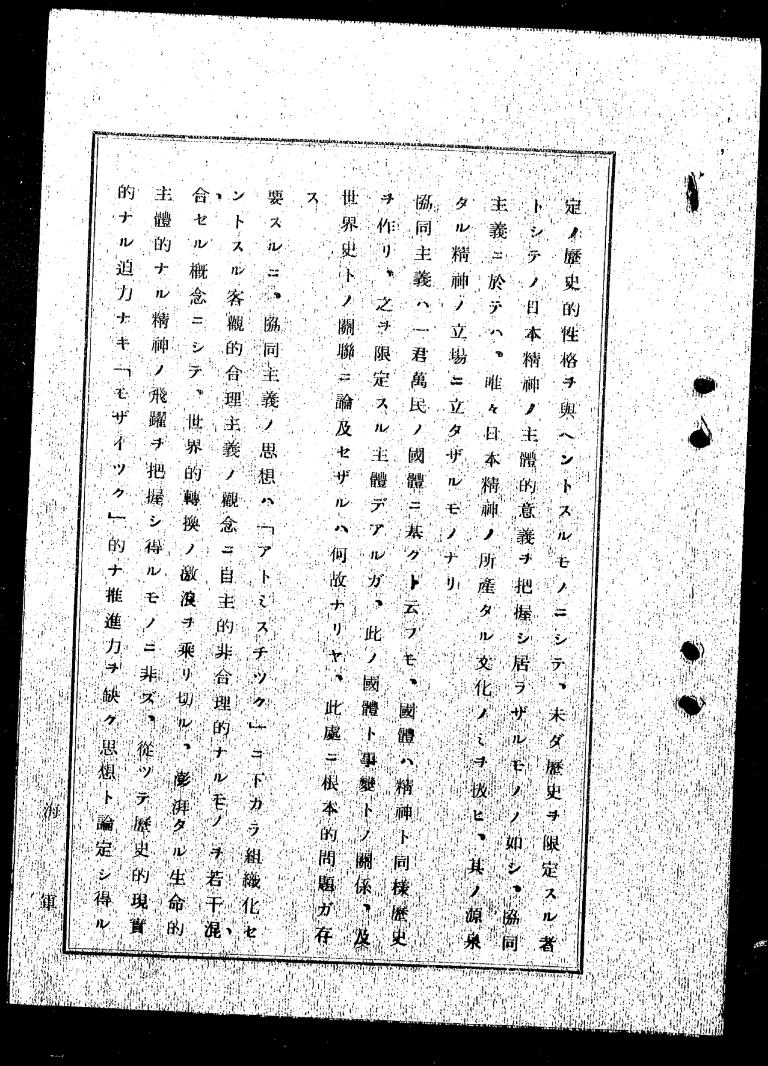 定ノ歷史的性格ヲ與ヘントスルモノニシテ、未ダ歷史ヲ限定スル者
トシテノ日本精神ノ主體的意義ヲ把握シ居ラザルモノノ如シ、協同
主義ニ於テハ、唯々日本精神ノ所產タル文化ノミヲ扱ヒ、其ノ源泉
タル精神ノ立場ニ立タザルモノナリ
協同主義ハ一君萬民ノ國體ニ基クト云フモ、國體ハ精神ト同樣歷史
ヲ作リ、之ヲ限定スル主體デアルガ、此ノ國體ト事變トノ關係、及
世界史トノ關聯ニ論及セザルハ何故ナリヤ、此處ニ根本的問題ガ存
ス
要スルニ、協同主義ノ思想ハ「アトミスチツク」ニ下カラ組織化セ
ントスル客觀的合理主義ノ觀念ニ自主的非合理的ナルモノヲ若干混
合セル概念ニシテ、世界的轉換ノ激浪ヲ乘リ切ル、澎湃タル生命的、
主體的ナル精神ノ飛躍ヲ把握シ得ルモノニ非ズ、從ツテ歷史的現實
的ナル迫力ナキ「モザイツク」的ナ推進力ヲ缺ク思想ト論定シ得ル
海軍